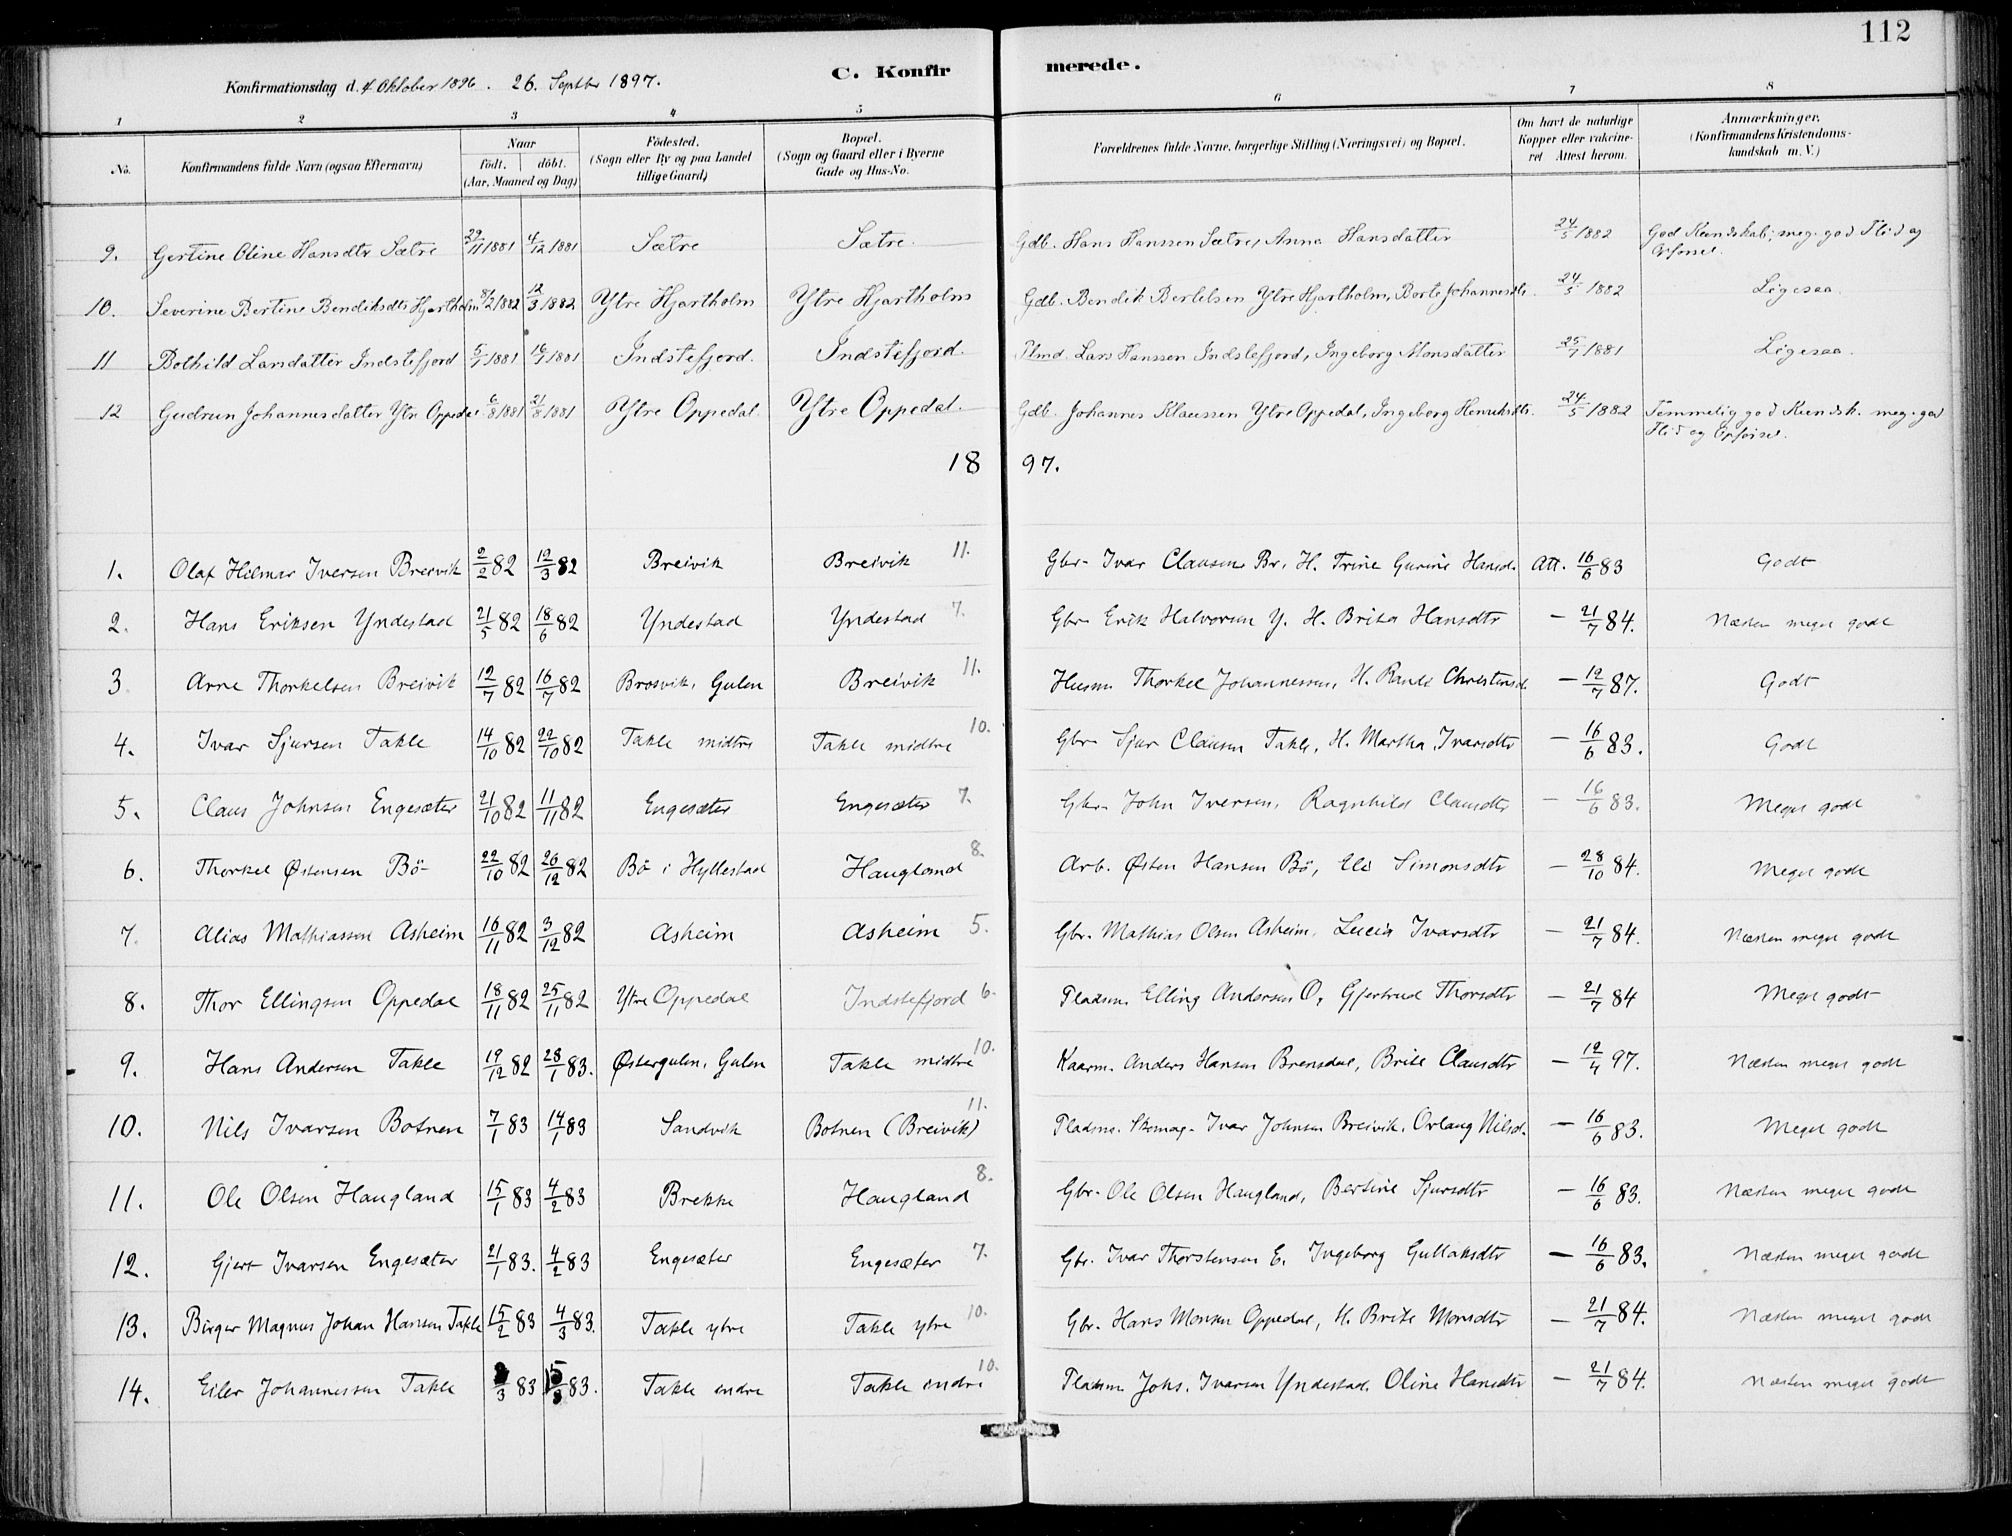 112
Konfirmationsdag d. 4 Oktober 1896. 26. Septbr 1897. C. Konfirmerede.
1 2 3 4 5 6 7 8
No. Konfirmandens fulde Navn (ogsaa Efternavn) Naar født. døbt. (Aar, Maaned og Dag) Fødested. (Sogn eller By og paa Landet tillige Gaard) Bopæl. (Sogn og Gaard eller i Byerne Gade og Hus-No. Forældrenes fulde Navne, borgerlige Stilling (Næringsvei) og Bopæl. Om havt de naturlige Kopper eller vakcineret Attest herom. Anmærkninger. (Konfirmandens Kristendomskundskab m. V.)
9. Gertine Oline Hansdtr Sætre 29/11 1881 4/12 1881 Sætre Sætre. Gdb. Hans Hanssen Sætre, Anna Hansdatter 24/5 1882 God Kundskab; meg. god Flid og Opførsel.
10. Severine Bertine Bendiksdtr Hjartholm 8/2 1882 12/3 1882 Ytre Hjartholm Ytre Hjartholm Gdb. Bendik Bertelsen Ytre Hjartholm, Borte Johannesdtr. 24/5 1882 Ligesaa.
11 Bothild Larsdatter Indstefjord 5/7 1881 16/7 1881 Indstefjord. Indstefjord. Plmd. Lars Hanssen Indstefjord, Ingeborg Monsdatter 25/7 1881 Ligesaa.
12 Gudrun Johannesdatter Ytre Oppedal 6/8 1881 21/8 1881 Ytre Oppedal. Ytre Oppedal. Gdb. Johannes Klaussen Ytre Oppedal, Ingeborg Henriksdtr. 24/5 1882 Temmelig god Kundsk. meg. god Flid og Opførsel.
1897.
1. Olaf Hilmar Iversen Breivik 2/2 82 12/3 82 Breivik Breivik 11. Gbr. Ivar Clausen Br. H. Trine Gurine Hansd. Att. 16/6 83 Godt
2. Hans Eriksen Yndestad 21/5 82 18/6 82 Yndestad Yndestad 7. Gbr. Erik Halvorsen Y. H. Brita Hansdtr — 21/7 84. Næsten meget godt
3. Arne Thorkelsen Breivik 12/7 82 16/7 82 Brosvik, Gulen Breivik 11. Husm. Thorkel Johannessen, H. Randi Christensd. — 12/7 87. Godt
4. Ivar Sjursen Takle 14/10 82 22/10 82 Takle midtre Takle midtre 10. Gbr. Sjur Clausen Takle, H. Martha Ivarsdtr — 16/6 83. Godt
5. Claus Johnsen Engesæter 21/10 82 11/11 82 Engesæter Engesæter 7. Gbr. John Iversen, Ragnhild Clausdtr — 16/6 83. Meget godt
6. Thorkel Østensen Bö 22/10 82 26/12 82 Bö i Hyllestad Haugland 8. Arb. Østen Hansen Bö, Eli Simonsdtr — 28/10 84. Meget godt
7. Alias Mathiassen Asheim 16/11 82 3/12 82 Asheim Asheim 5. Gbr. Mathias Olsen Asheim, Lucia Ivarsdtr — 21/7 84. Næsten meget godt
8. Thor Ellingsen Oppedal 18/11 82 25/11 82 Ytre Oppedal Indstefjord 6. Pladsm. Elling Andersen O, Gjertrud Thorsdtr — 21/7 84 Meget godt
9. Hans Andersen Takle 19/12 82 28/1 83. Østergulen, Gulen Takle midtre 10. Kaarm. Anders Hansen Brensdal, Brite Clausdtr — 12/4 97. Næsten meget godt
10. Nils Ivarsen Botnen 7/1 83 14/1 83 Sandvik Botnen (Breivik) 11. Pladsm. Skomag. Ivar Johnsen Breivik, Orlaug Nilsd. — 16/6 83. Meget godt
11. Ole Olsen Haugland 15/1 83 4/2 83 Brekke Haugland 8. Gbr. Ole Olsen Haugland, Bertine Sjursdtr — 16/6 83. Næsten meget godt
12. Gjert Ivarsen Engesæter 21/1 83. 4/2 83 Engesæter Engesæter 7. Gbr. Ivar Thorstensen E. Ingeborg Gullaksdtr — 16/6 83. Næsten meget godt
13. Birger Magnus Johan Hansen Takle 15/2 83 4/3 83. Takle ytre Takle ytre 10. Gbr. Hans Monsen Oppedal, H. Brite Monsdtr — 21/7 84. Næsten meget godt
14. Eiler Johannessen Takle /3 83 15/ 83. Takle indre Takle indre 10. Pladsm. Johs. Ivarsen Yndestad. Oline Hansdtr — 21/7 84. Næsten meget godt